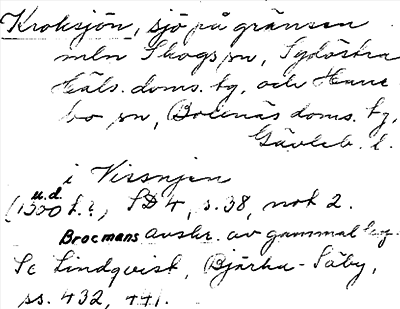 Kroksjön, sjö på gränsen
mln Skogs sn, Sydöstra
Häls. doms. tg, och Hane
bo sn, Bollnäs doms. tg,
Gävleb. l.
i Vissnjen
u.d.
(1300 t.?) SD 4, s. 38, not 2.
Brocmans avskr. av gammal
Se Lindqvist, Bjärka-Säby,
ss. 432, 441.